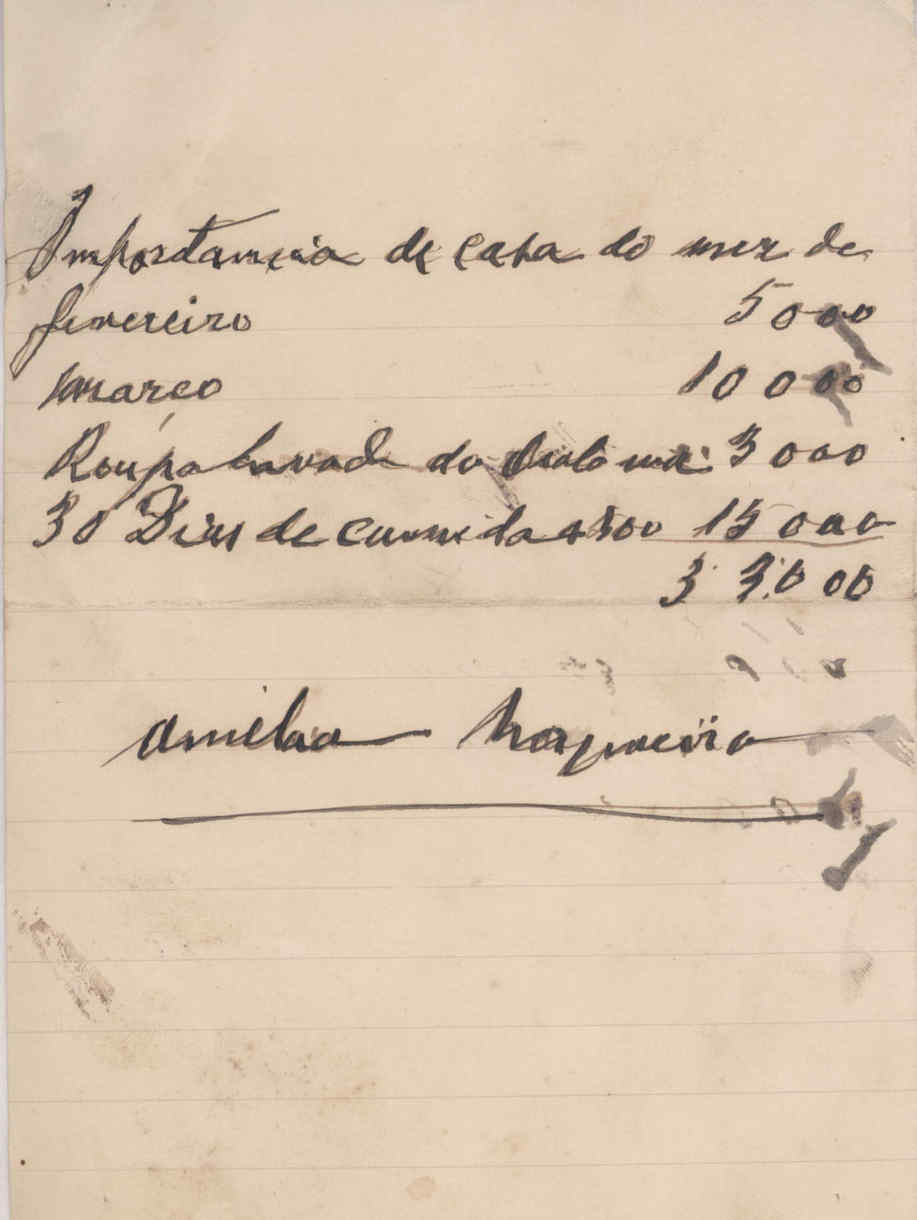 Importancia de casa do mez de
fevereiro 5000
Março 10000
Roupa lavada do 3000
30 Dias de cumida a 500 15000
33.000
Amelia Nogueira